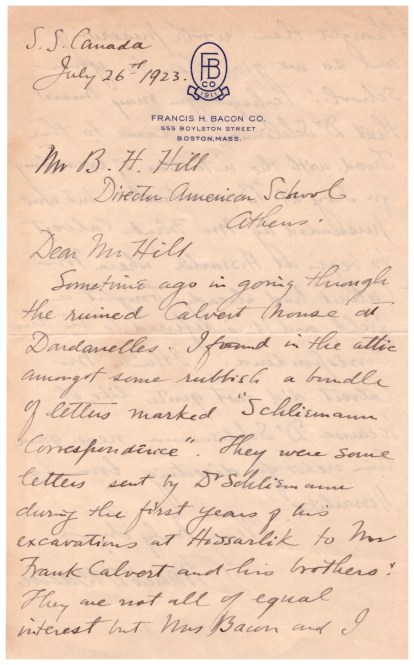 S.S. Canada
July 26th 1923.
FB
CO
1911
FRANCIS H. BACON CO.
555 BOYLSTON STREET
BOSTON, MASS.
Mr B. H. Hill
Director American School
Athens.
Dear Mr Hill
Sometime ago in going through
the ruined Calvert house at
Dardanelles. I found in the attic
amongst some rubbish a bundle
of letters marked "Schliemann
Correspondence". They were some
letters sent by Dr Schliemann
during the first years of his
excavations at Hissarlik to Mr
Frank Calvert and his brothers.
They are not all of equal
interest but Mrs Bacon and I